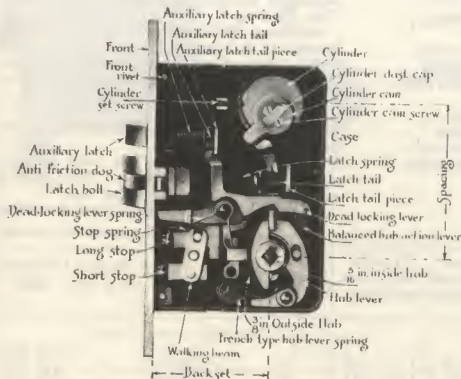 Auxiliary latch spring
Auxiliary latch tail
Auxiliary latch tail piece
Front
Front
rivet
Cylinder
set screw
Auxiliary latch
Anti friction dog
Latch bolt
Dead-locking lever spring
Stop spring
Long stop
Short stop
Walking beam
Back set
Cylinder
Cylinder dust cap
Cylinder cam
Cylinder cam screw
Case
Latch spring
Latch tail
Latch tail piece
Dead locking lever
Balanced hub action lever
Spacing
5/16 in. inside hub
Hub lever
3/8 in Outside Hub
French type hub lever spring